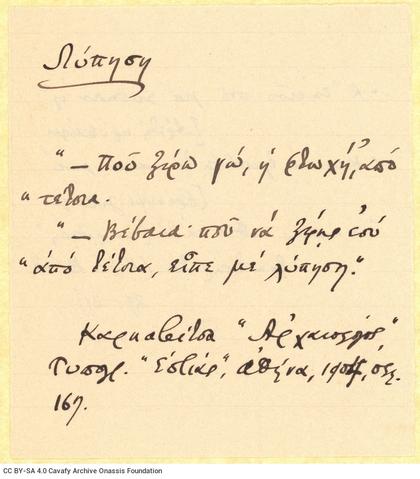 Λύπηση
"— Ποῦ ξέρω γώ, ἡ φτωχή, ἀπό
" τέτοια.
"— Βέβαια· ποῦ νά ξέρῃς ἐσύ
" ἀπό τέτοια, εἶπε μέ λύπηση."
Καρκαβίτσα "Ἀρχαιολόγος",
Τυπογρ. "Ἑστίας", Ἀθήνα, 1904, σελ.
167.
CC BY-SA 4.0 Cavafy Archive Onassis Foundation